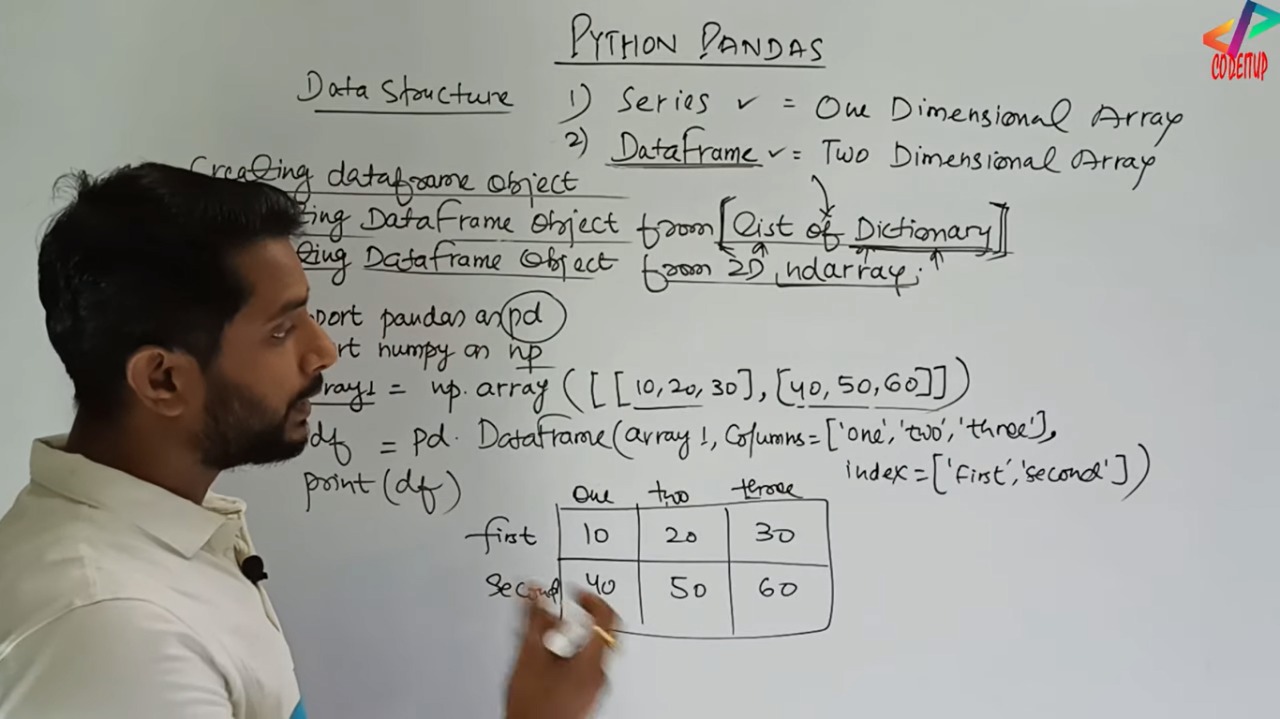 PYTHON PANDAS
CODEITUP
Data Structure 1) Series ✓ = One Dimensional Array
2) DataFrame ✓ = Two Dimensional Array
Creating dataframe object
ting DataFrame Object from [List of Dictionary]
ting Dataframe Object from 2D ndarray.
port pandas as pd
rt numpy as np
rray1 = np.array([[10,20,30],[40,50,60]])
df = pd.DataFrame(array1, Columns=['one','two','three'],
index=['first','second'])
print(df)
one two three
first 10 20 30
Second 40 50 60